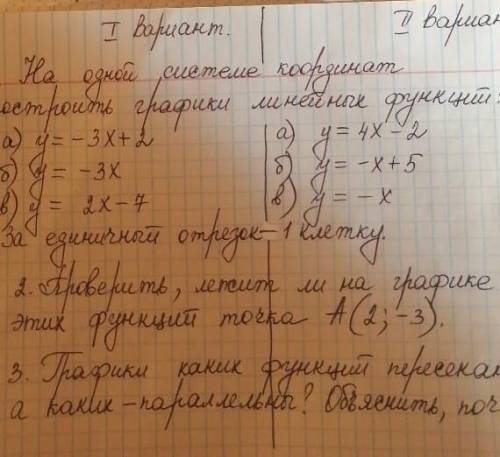 I Вариант. II Вариан
На одной системе координат
остроить графики линейных функций:
а) y = -3x+2 а) y = 4x-2
б) y = -3x б) y = -x+5
в) y = 2x-7 в) y = -x
За единичный отрезок-1 клетку.
2. Проверить, лежит ли на графике
этих функций точка A(2;-3).
3. Графики каких функций пересека
а каких-параллельны? Объяснить, поч